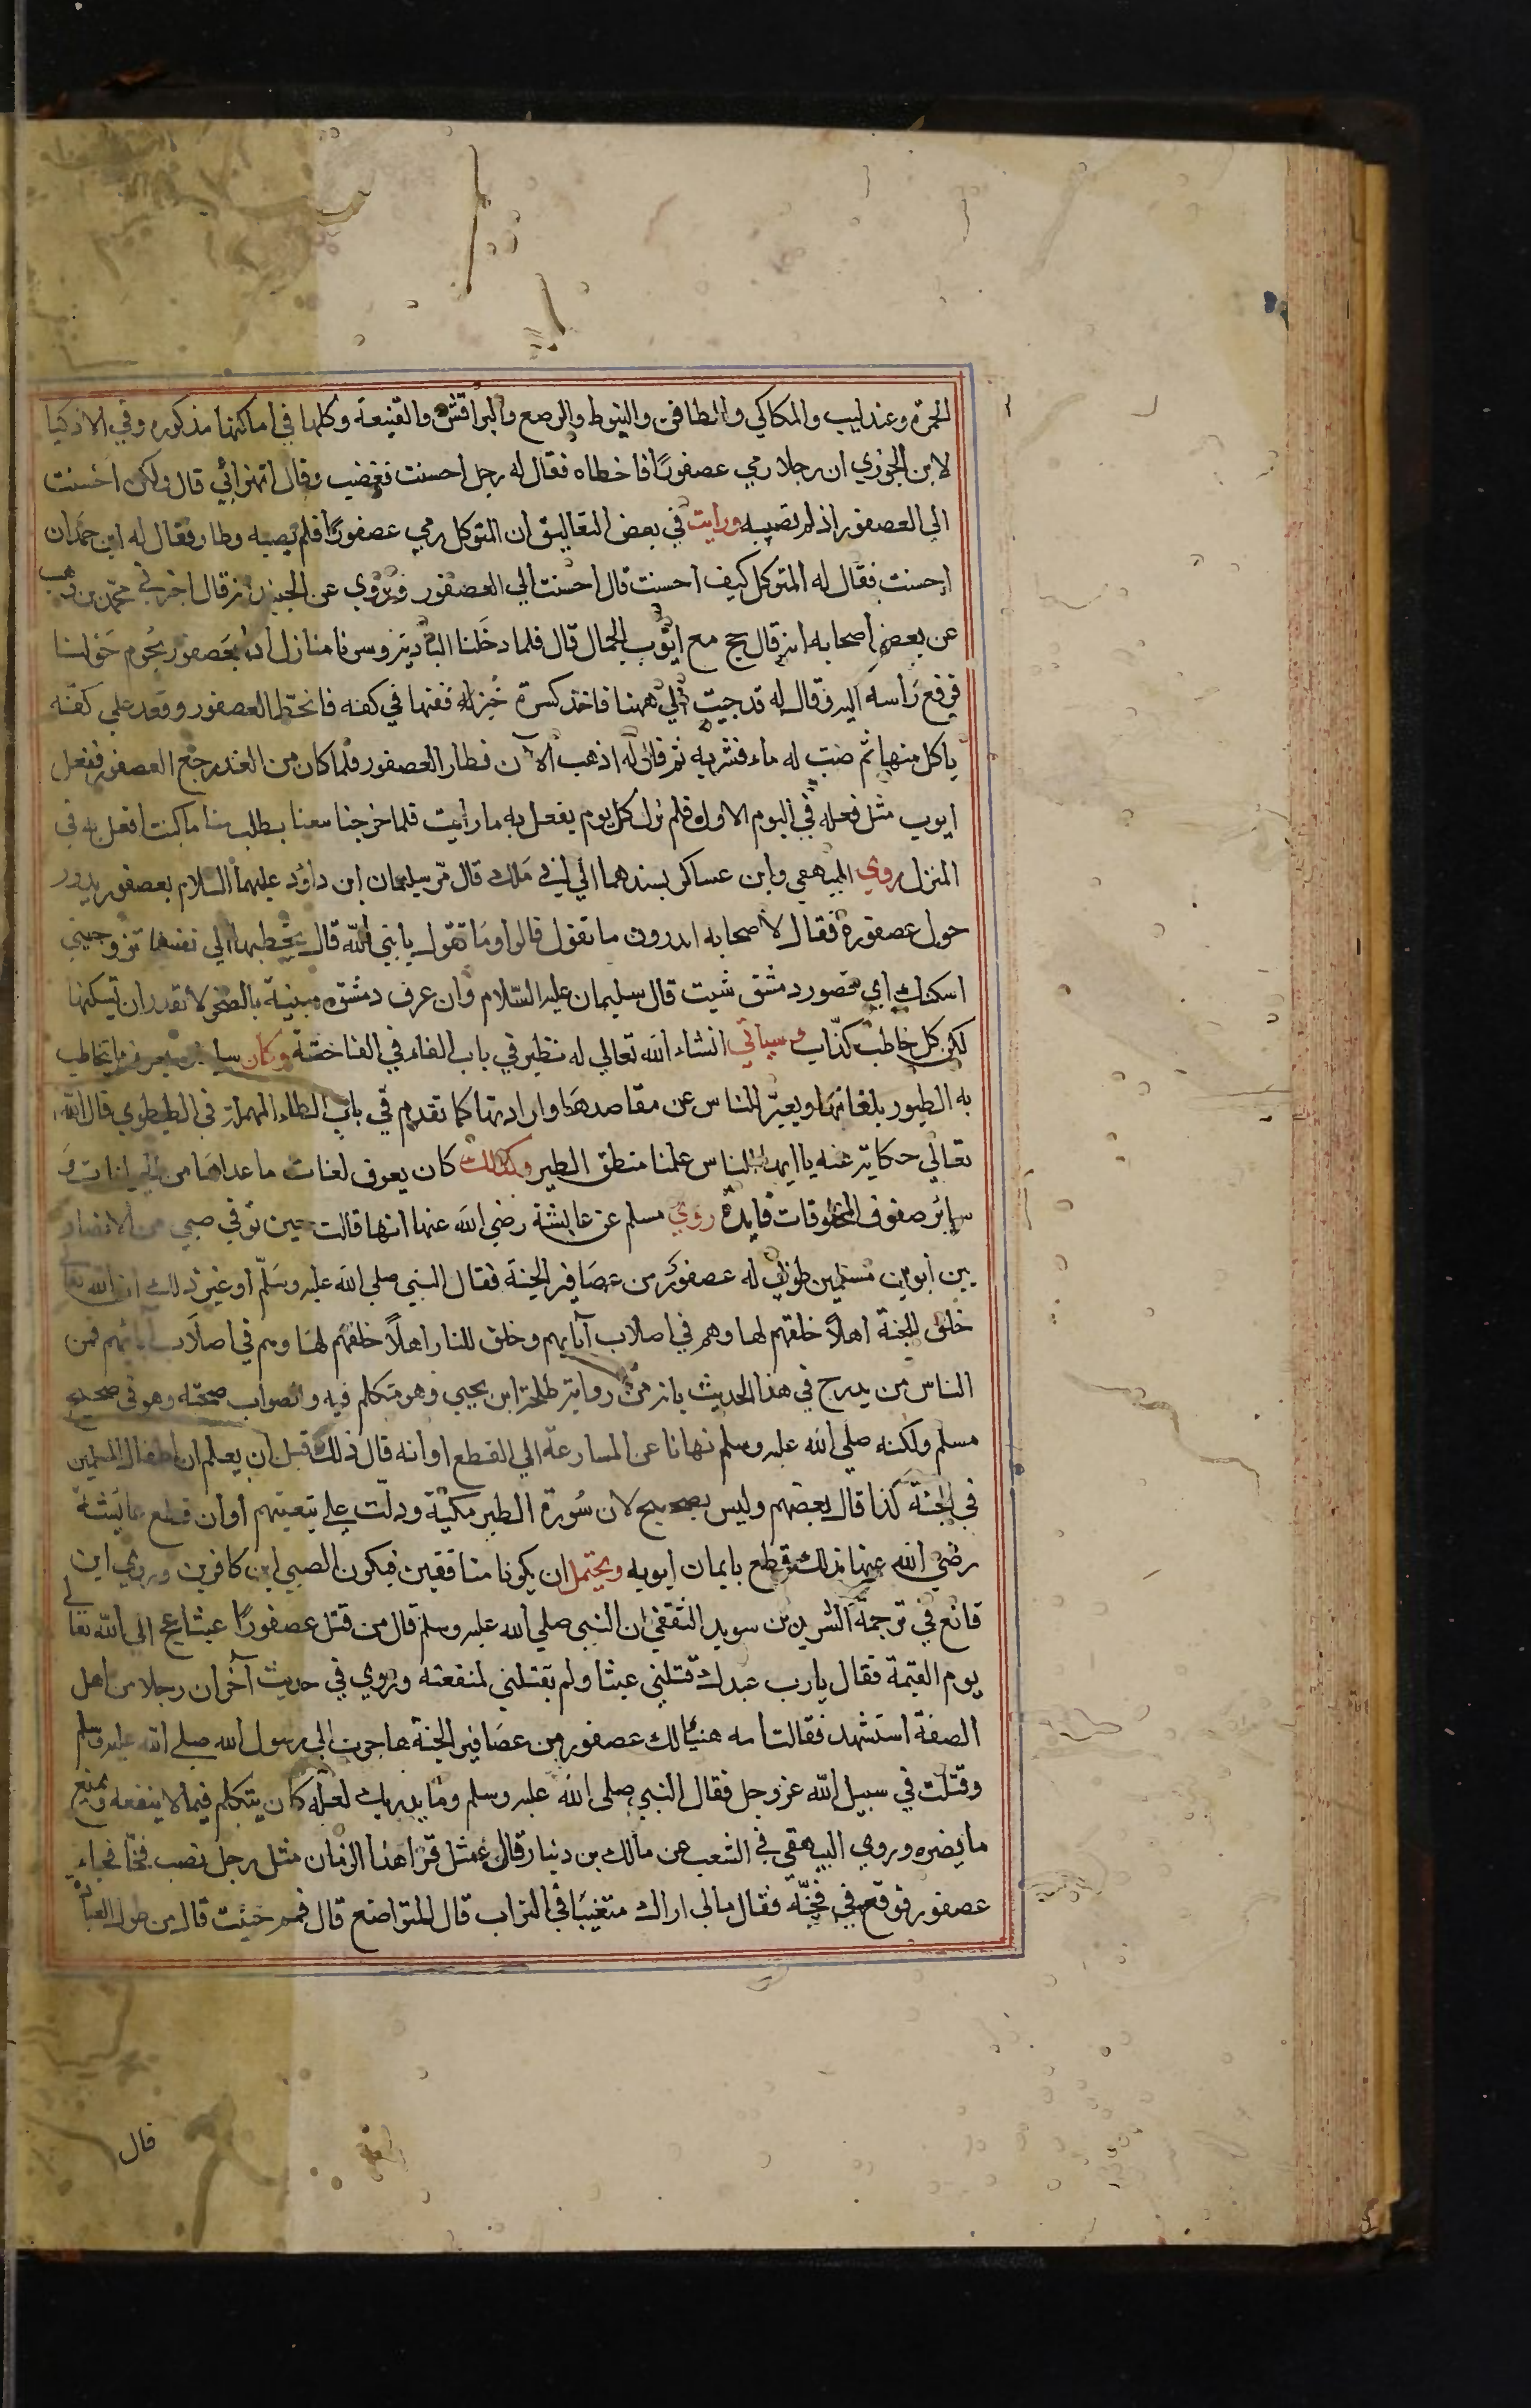 الحمرة وعندليب والمكاكي والطافن والنوط والوصع والبراقش والقنيعة وكلها في اماكنها مذكوره وفي الاذكيا
لابن الجوزي ان رجلا رمي عصفورًا فاخطاه فقال له رجل احسنت فغضب وقال اتهزأ بي قال ولكن احسنت
الي العصفور اذ لم تصيبه ورايت في بعض التعاليق ان المتوكل رمي عصفورًا فلم يصيبه وطار فقال له ابن حمدان
احسنت فقال له المتوكل كيف احسنت قال احسنت الي العصفور وروي عن الجنيد انه قال اخبرني محمد بن وهب
عن بعض اصحابه انه قال حج مع ايوب الجمال قال فلما دخلنا البادية وسرنا منازل اذا بعصفور يحوم حولنا
فرفع راسه اليه وقال له قد جيت الي ههنا فاخذ كسرة خبز ففتها في كفه فانحط العصفور وقعد علي كفه
ياكل منها ثم صب له ماء فشربه ثم قال له اذهب الآن فطار العصفور فلما كان من الغد رجع العصفور ففعل
ايوب مثل فعله في اليوم الاول فلم نزل كل يوم يفعل به ما رايت فلما خرجنا معنا يطلب منا ما كنت افعل به في
المنزل روي البيهقي وابن عساكر بسندهما الي ابي ملك قال مر سليمان ابن داود عليهما السلام بعصفور يدور
حول عصفورة فقال لاصحابه اتدرون ما تقول قالوا وما تقول يا نبي الله قال يخطبها الي نفسها تزوجيني
اسكنك اي قصور دمشق شيت قال سليمان عليه السلام وان عرف دمشق مبنية بالصخر لا تقدر ان تسكنها
لكن كل خاطب كذاب وسياتي انشاء الله تعالي له نظير في باب الفاء في الفاختة وكان سليمان يعرف ما يتخاطب
به الطيور بلغاتها ويعبر للناس عن مقاصدها وارادتها كما تقدم في باب الطاء المهملة في الطيطوي قال الله
تعالي حكاية عنه يا ايها الناس علمنا منطق الطير وكذلك كان يعرف لغات ما عداها من الحيوانات و
سائر صفوف المخلوقات فايدة روي مسلم عن عايشة رضي الله عنها انها قالت حين توفي صبي من الانصار
بين ابوين مسلمين طوبي له عصفور من عصافير الجنة فقال النبي صلي الله عليه وسلم او غير ذلك ان الله تعالي
خلق للجنة اهلاً خلقهم لها وهم في اصلاب آبايهم وخلق للنار اهلاً خلقهم لها وهم في اصلاب آبايهم فمن
الناس من يدرج في هذا الحديث بانه من رواية طلحة ابن يحيي وهو متكلم فيه والصواب صحته وهو في صحيح
مسلم ولكنه صلي الله عليه وسلم نهانا عن المسارعة الي القطع او انه قال ذلك قبل ان يعلم ان اطفال المسلمين
في الجنة كذا قال بعضهم وليس بصحيح لان سورة الطير مكية ودلت علي تبعيتهم او ان قطع عايشة
رضي الله عنها بذلك قطع بايمان ابويه ويحتمل ان يكونا منافقين فيكون الصبي ابن كافرين وروي ابن
قانع في ترجمة الشريد بن سويد الثقفي ان النبي صلي الله عليه وسلم قال من قتل عصفورًا عبثا عج الي الله تعالي
يوم القيمة فقال يا رب عبدك قتلني عبثا ولم يقتلني لمنفعته وروي في حديث آخر ان رجلا من اهل
الصفة استشهد فقالت امه هنيًا لك عصفور من عصافير الجنة هاجرت الي رسول الله صلي الله عليه وسلم
وقتلت في سبيل الله عز وجل فقال النبي صلي الله عليه وسلم وما يدريك لعله كان يتكلم فيما لا ينفعه ويمنع
ما يضره وروي البيهقي في الشعب عن مالك بن دينار قال مثل قرا هذا الزمان مثل رجل نصب فخًا فجاء
عصفور فوقع في فخه فقال مالي اراك متغيبًا في التراب قال للتواضع قال فمم خيئت قال من طول العبادة
قال